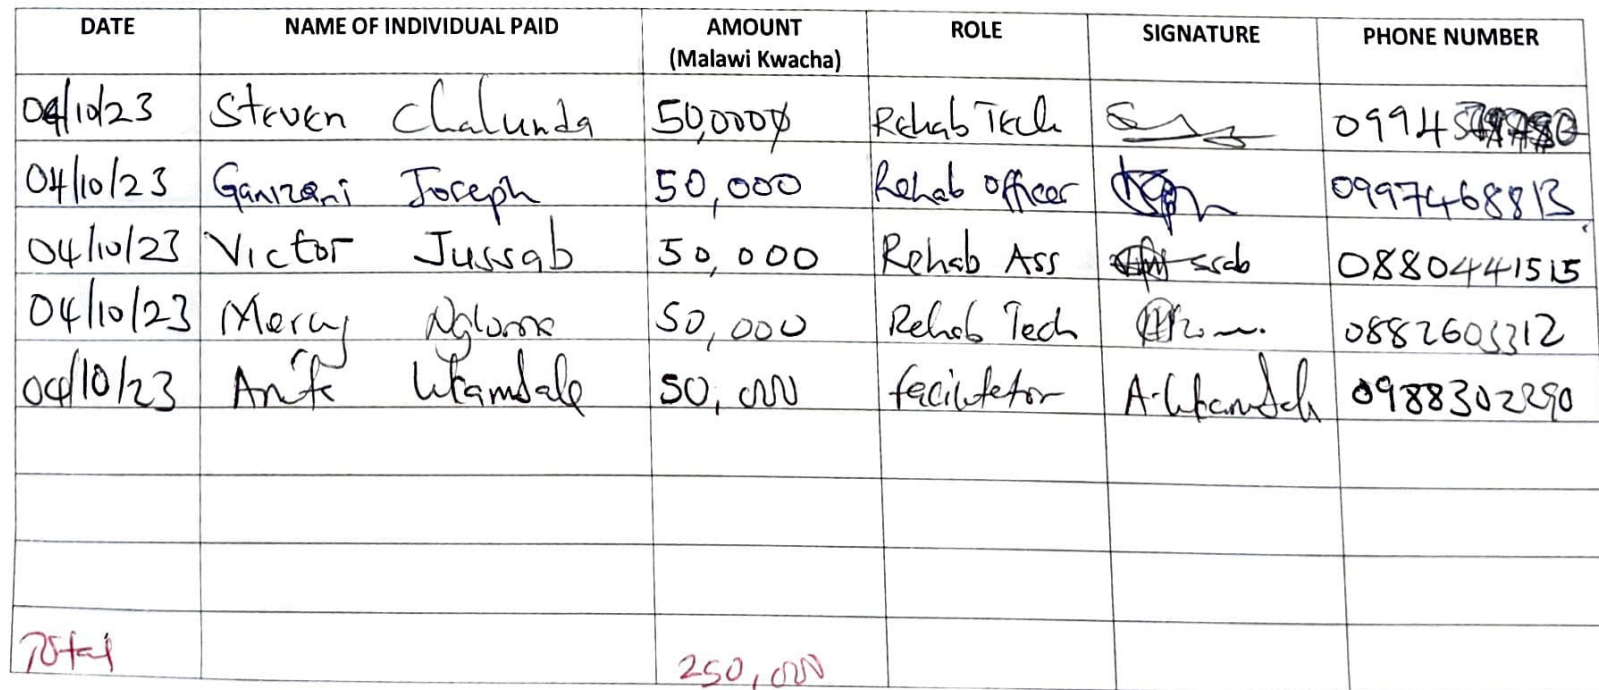 DATE NAME OF INDIVIDUAL PAID AMOUNT (Malawi Kwacha) ROLE SIGNATURE PHONE NUMBER
04/10/23 Steven Chalunda 50,000 Rehab Tech 09945
04/10/23 Ganizani Joseph 50,000 Rehab Officer 0997468813
04/10/23 Victor Jussab 50,000 Rehab Ass 0880441515
04/10/23 Mercy 50,000 Rehab Tech
04/10/23 50,000 facilitator 0988302290
Total 250,000